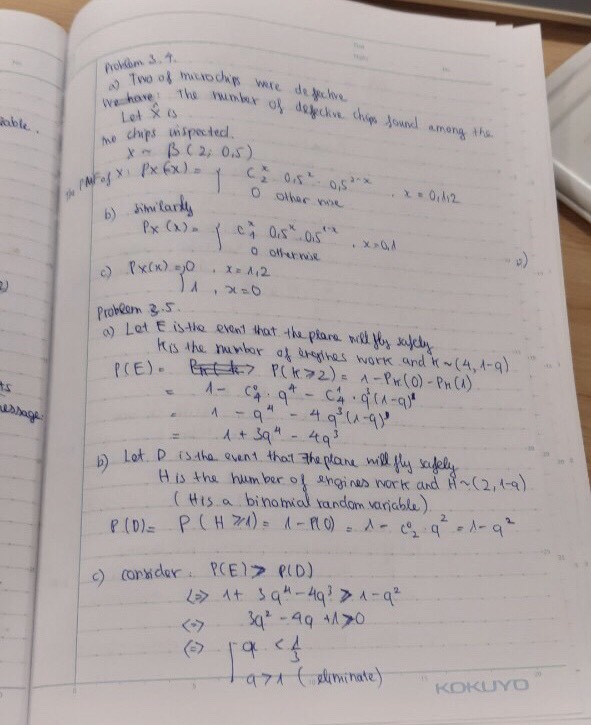 Problem 3.4.
a) Two of microchips were defective
We have: The number of defective chips found among the
Let X is
two chips inspected.
X ~ B(2, 0,5)
The PMF of X: Px(x) = { C₂ˣ 0,5ˣ · 0,5²⁻ˣ , x = 0,1,2
0 otherwise
b) Similarly
Px(x) = { C₁ˣ 0,5ˣ · 0,5¹⁻ˣ , x = 0,1
0 otherwise
c) Px(x) = { 0 , x = 1,2
1 , x = 0
Problem 3.5.
a) Let E is the event that the plane will fly safely
K is the number of engines work and K ~ (4, 1-q)
P(E) = P(K ≥ 2) = 1 - P_K(0) - P_K(1)
= 1 - C₄⁰ · q⁴ - C₄¹ · q³(1-q)
= 1 - q⁴ - 4q³(1-q)
= 1 + 3q⁴ - 4q³
b) Let D is the event that the plane will fly safely
H is the number of engines work and H ~ (2, 1-q)
(H is a binomial random variable)
P(D) = P(H ≥ 1) = 1 - P(0) = 1 - C₂⁰ · q² = 1 - q²
c) consider P(E) > P(D)
<=> 1 + 3q⁴ - 4q³ ≥ 1 - q²
<=> 3q² - 4q + 1 > 0
<=> [ q < 1/3
q > 1 (eliminate)
KOKUYO
able.
essage.